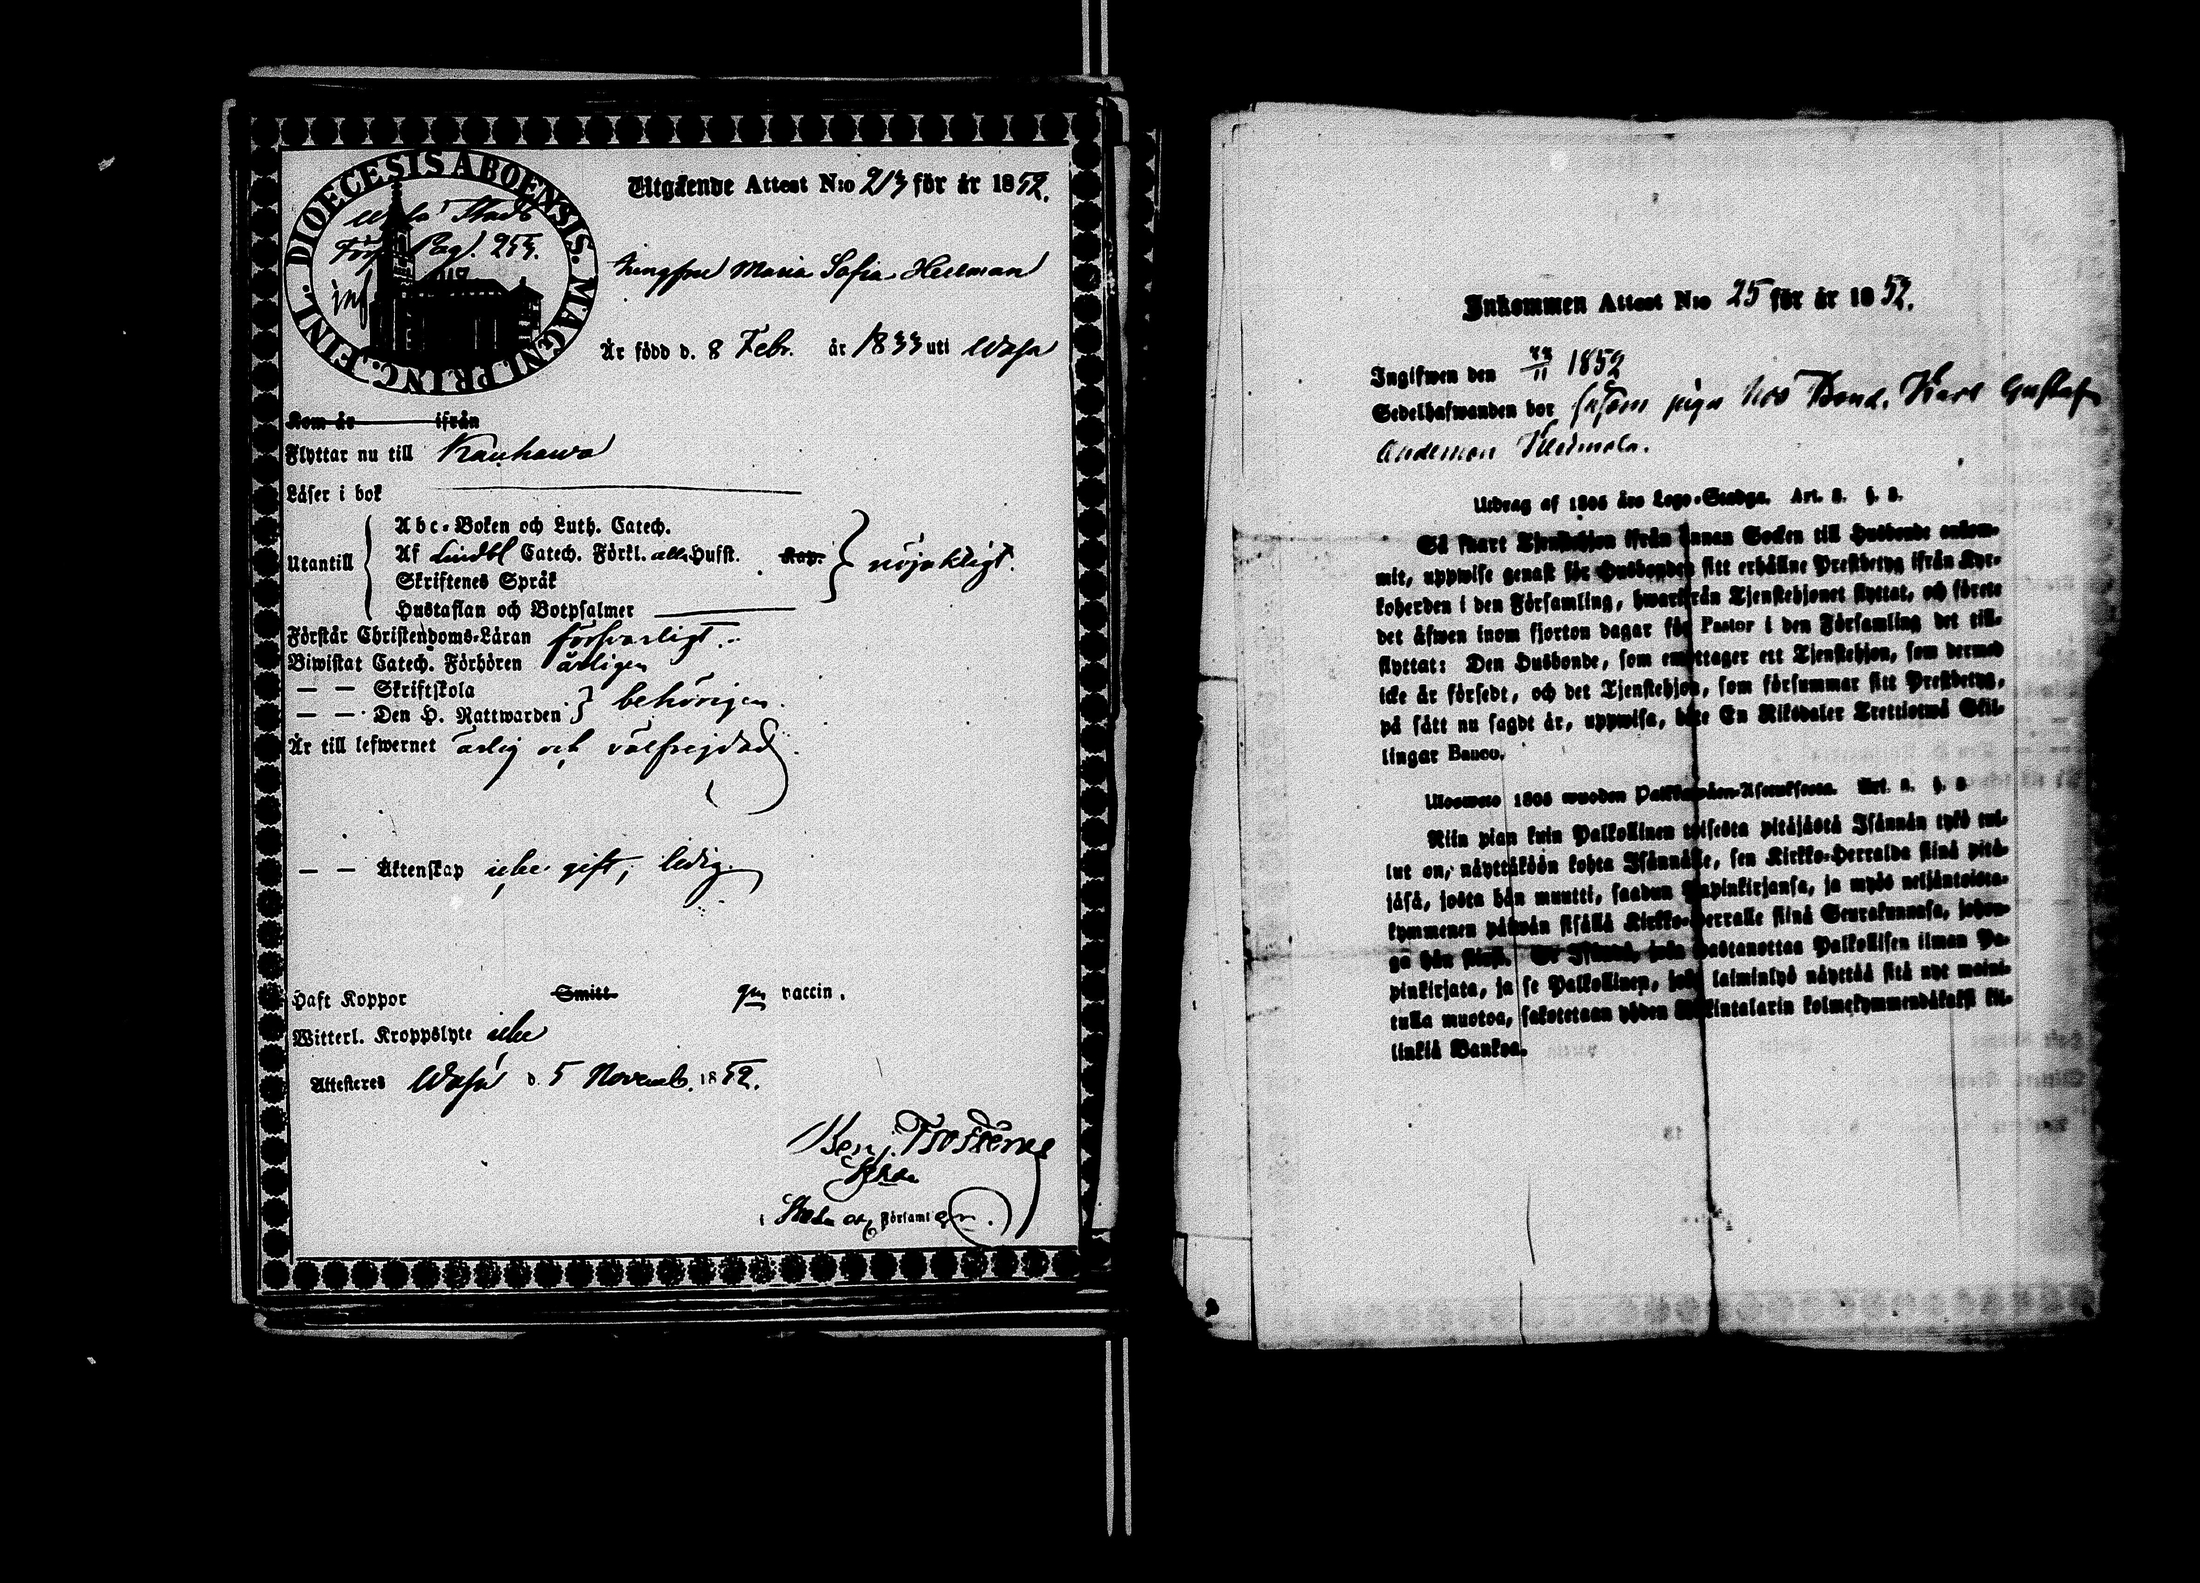 DIOECESIS ABOENSIS. MAGNI. PRINC. FINL.
Wasa Stads
Förs. Pag. 253.
inf
Utgående Attest N:o 213 för år 1852.
Jungfrue Maria Sofia Hellman
Är född d. 8 Febr. år 1833 uti Wasa
Kom år ifrån
Flyttar nu till Kauhawa
Läser i bok
Utantill
Abc-Boken och Luth. Catech.
Af Lindbl Catech. Förkl. alla Hufst. Kap.
Skriftenes Språk
Hustaflan och Botpsalmer
nöjaktligt.
Förstår Christendoms-Läran försvarligt.
Biwistat Catech. Förhören årligen
— — Skriftskola
— — Den H. Nattwarden
behörigen.
Är till lefwernet ärlig och välfrejdad.
— — Äktenskap icke gift, ledig.
Haft Koppor Smitt gm vaccin.
Witterl. Kroppslyte icke
Attesteres Wasa d. 5 Novemb. 1852.
Benj. Frosterus
i Stads och Församl en.
Inkommen Attest N:o 25 för år 1852.
Ingifwen den 22/11 1852
Sedelhafwanden bor såsom piga hos Bond. Karl Gustaf
Anderson Heimola.
Utdrag af 1805 års Lego-Stadga. Art. 2. §. 2.
Så snart Tjenstehjon ifrån annan Socken till Husbonde ankom-
mit, uppwise genast för Husbonden sitt erhållne Prestbetyg ifrån Kyr-
koherden i den Församling, hwarifrån Tjenstehjonet flyttat, och förete
det äfwen inom fjorton dagar för Pastor i den Församling det till-
flyttat: Den Husbonde, som emottager ett Tjenstehjon, som dermed
icke är försedt, och det Tjenstehjon, som försummar sitt Prestbetyg,
på sätt nu sagdt är, uppwisa, böte En Riksdaler Trettiotwå Skil-
lingar Banco.
Ulosweto 1805 wuoden Palkkawäen-Asetuksesta. Art. 2. §. 2
Niin pian kuin Palkollinen toisesta pitäjästä Isännän tykö tul-
lut on, näyttäköön kohta Isännälle, sen Kirkko-Herralda siinä pitä-
jäsä, josta hän muutti, saadun Papinkirjansa, ja myös neljäntoista-
kymmenen päiwän sisällä Kirkko-Herralle siinä Seurakunnasa, johon-
ga hän siirsi. Se Isäntä, joka wastanottaa Palkollisen ilman Pa-
pinkirjata, ja se Palkollinen, joka laiminlyö näyttää sitä nyt maini-
tulla muotoa, sakotetaan yhden Riikintalarin kolmekymmendäkaksi kil-
linkiä Bankoa.